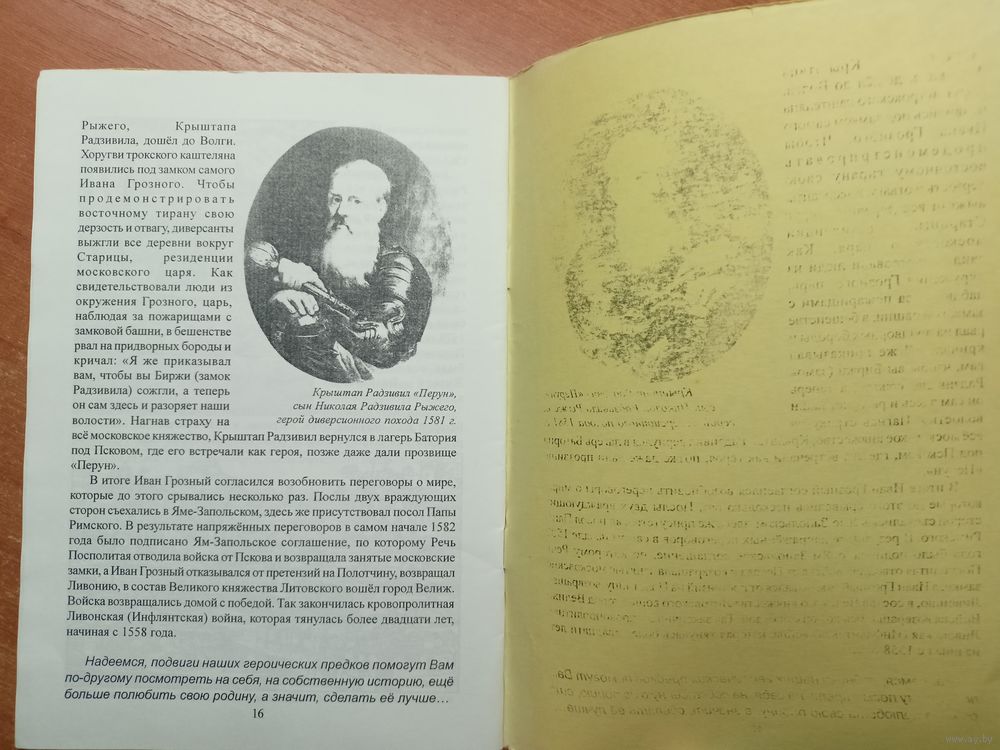 Рыжего, Крыштапа
Радзивила, дошёл до Волги.
Хоругви трокского каштеляна
появились под замком самого
Ивана Грозного. Чтобы
продемонстрировать
восточному тирану свою
дерзость и отвагу, диверсанты
выжгли все деревни вокруг
Старицы, резиденции
московского царя. Как
свидетельствовали люди из
окружения Грозного, царь,
наблюдая за пожарищами с
замковой башни, в бешенстве
рвал на придворных бороды и
кричал: «Я же приказывал
вам, чтобы вы Биржи (замок
Радзивила) сожгли, а теперь
он сам здесь и разоряет наши
волости». Нагнав страху на
всё московское княжество, Крыштап Радзивил вернулся в лагерь Батория
под Псковом, где его встречали как героя, позже даже дали прозвище
«Перун».
Крыштап Радзивил «Перун»,
сын Николая Радзивила Рыжего,
герой диверсионного похода 1581 г.
В итоге Иван Грозный согласился возобновить переговоры о мире,
которые до этого срывались несколько раз. Послы двух враждующих
сторон съехались в Яме-Запольском, здесь же присутствовал посол Папы
Римского. В результате напряжённых переговоров в самом начале 1582
года было подписано Ям-Запольское соглашение, по которому Речь
Посполитая отводила войска от Пскова и возвращала занятые московские
замки, а Иван Грозный отказывался от претензий на Полотчину, возвращал
Ливонию, в состав Великого княжества Литовского вошёл город Велиж.
Войска возвращались домой с победой. Так закончилась кровопролитная
Ливонская (Инфлянтская) война, которая тянулась более двадцати лет,
начиная с 1558 года.
Надеемся, подвиги наших героических предков помогут Вам
по-другому посмотреть на себя, на собственную историю, ещё
больше полюбить свою родину, а значит, сделать её лучше…
16
www.ay.by